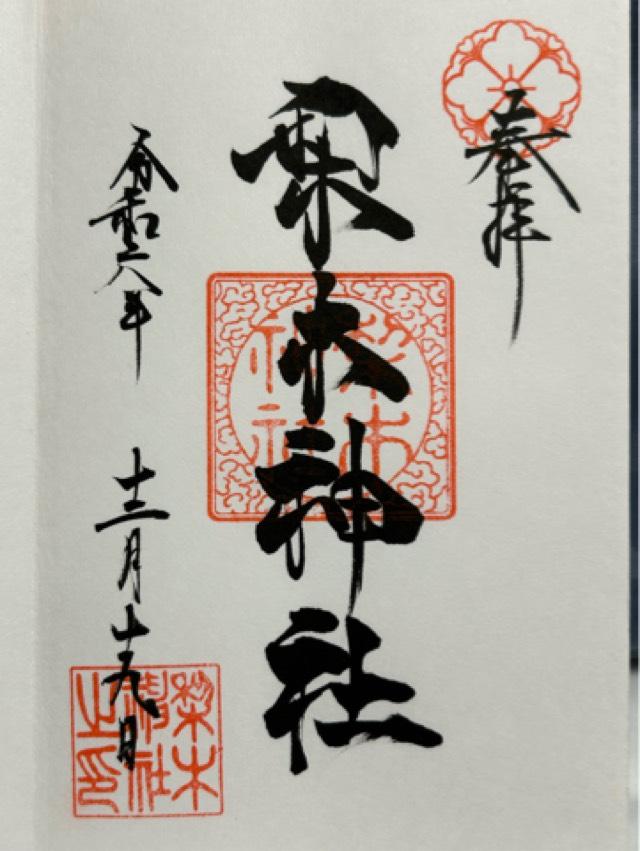 奉拝
梨木神社
令和六年 十二月十九日
梨木神社
梨木神社之印